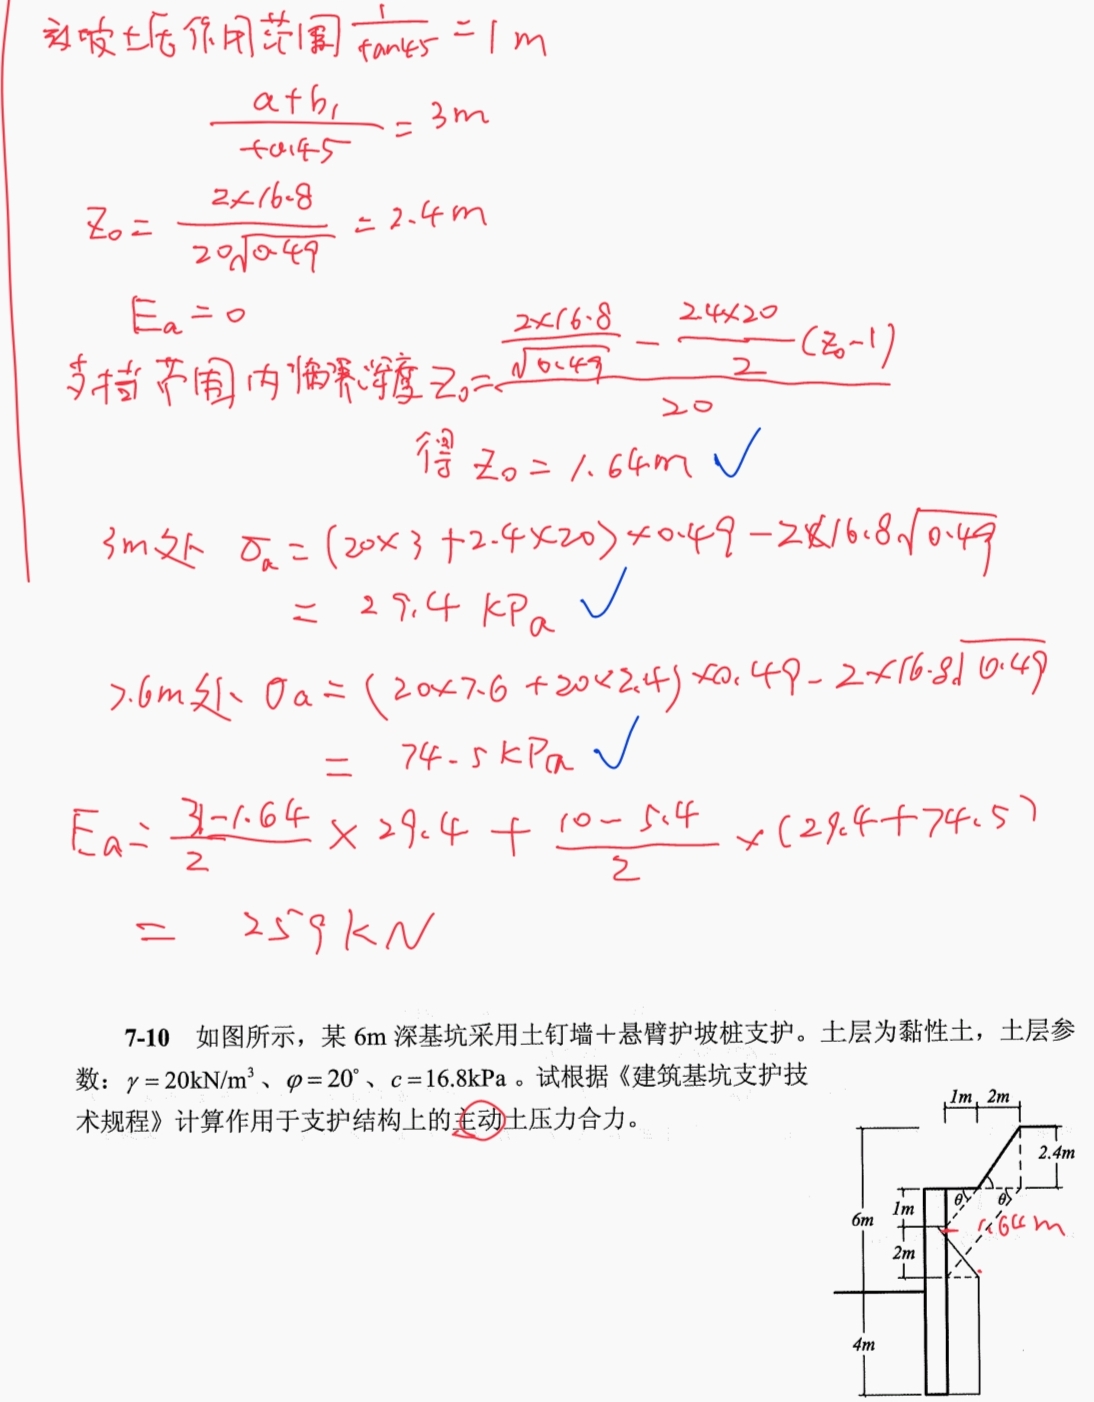 放坡土压作用范围 1/tan45 = 1m
(a+b₁)/tan45 = 3m
Z₀ = (2×16.8)/(20√0.49) = 2.4m
Ea = 0
支挡范围内临界深度 Z₀ = ((2×16.8)/√0.49 − (2.4×20)/2 (Z₀−1))/20
得 Z₀ = 1.64m ✓
3m处 σa = (20×3+2.4×20)×0.49−2×16.8√0.49
= 29.4 kPa ✓
7.6m处 σa = (20×7.6+20×2.4)×0.49−2×16.8√0.49
= 74.5kPa ✓
Ea = (3−1.64)/2 × 29.4 + (10−5.4)/2 × (29.4+74.5)
= 259kN
7-10 如图所示，某 6m 深基坑采用土钉墙＋悬臂护坡桩支护。土层为黏性土，土层参
数：γ＝20kN/m³、φ＝20°、c＝16.8kPa。试根据《建筑基坑支护技
术规程》计算作用于支护结构上的主动土压力合力。
1m 2m
2.4m
1m θ θ
6m 1.64m
2m
4m